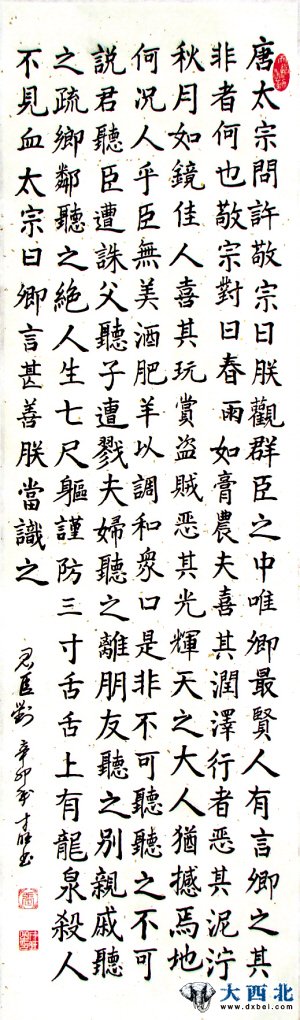 唐太宗問許敬宗曰朕觀群臣之中唯卿最賢人有言卿之其
非者何也敬宗對曰春雨如膏農夫喜其潤澤行者惡其泥泞
秋月如鏡佳人喜其玩賞盗賊惡其光輝天之大人猶撼焉地
何況人乎臣無美酒肥羊以調和衆口是非不可聽聽之不可
説君聽臣遭誅父聽子遭戮夫婦聽之離朋友聽之別親戚聽
之疏鄉鄰聽之絶人生七尺軀謹防三寸舌舌上有龍泉殺人
不見血太宗曰卿言甚善朕當識之
君臣對 辛卯 書
大西北
www.dxbei.com